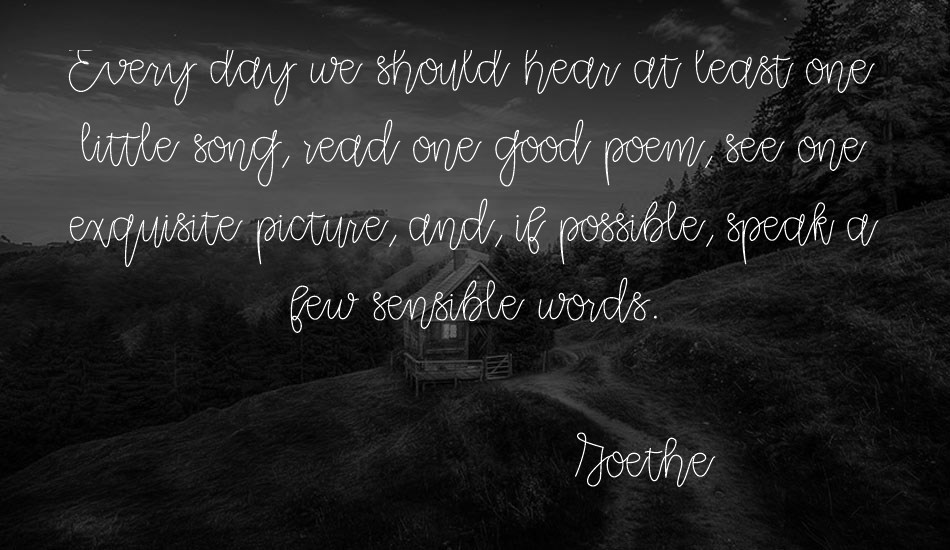 Every day we should hear at least one
little song, read one good poem, see one
exquisite picture, and, if possible, speak a
few sensible words.
Goethe